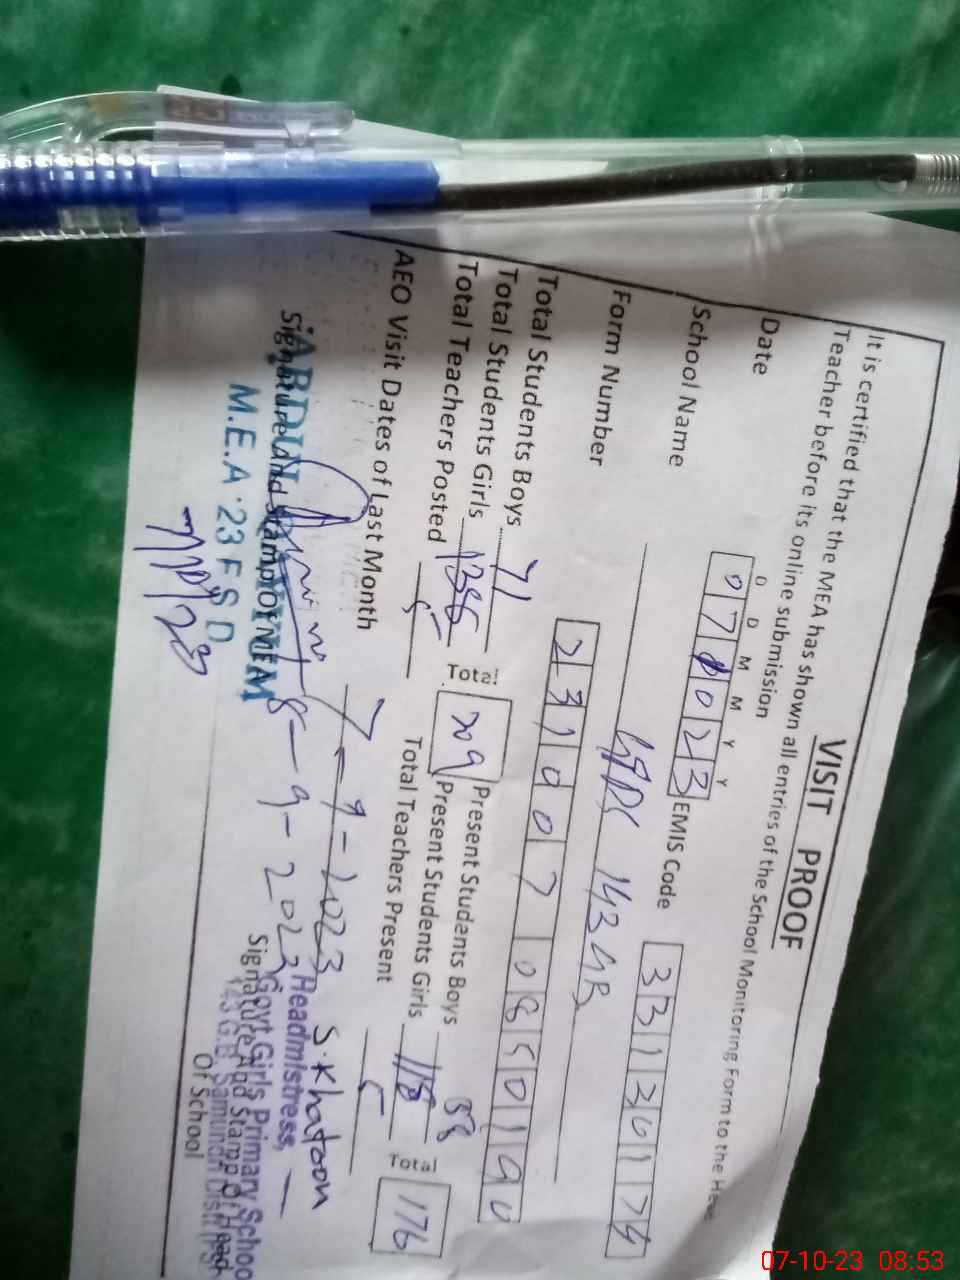 VISIT PROOF
It is certified that the MEA has shown all entries of the School Monitoring Form to the Head
Teacher before its online submission
D D M M Y Y
Date 07 10 23 EMIS Code 33130174
School Name GGPS 143 GB
Form Number 2310070850190
Total Students Boys 71 Total 209 Present Students Boys 58 Total 176
Total Students Girls 138 Present Students Girls 118
Total Teachers Posted 5 Total Teachers Present 5
AEO Visit Dates of Last Month 7-9-2023
8-9-2023
S. Khatoon
Signature and Stamp of MEA
M.E.A. 23 F S D
7/10/23
Headmistress,
Govt. Girls Primary School
143 G.B. Samundri
Signature And Stamp of Head
Of School
07-10-23 08:53